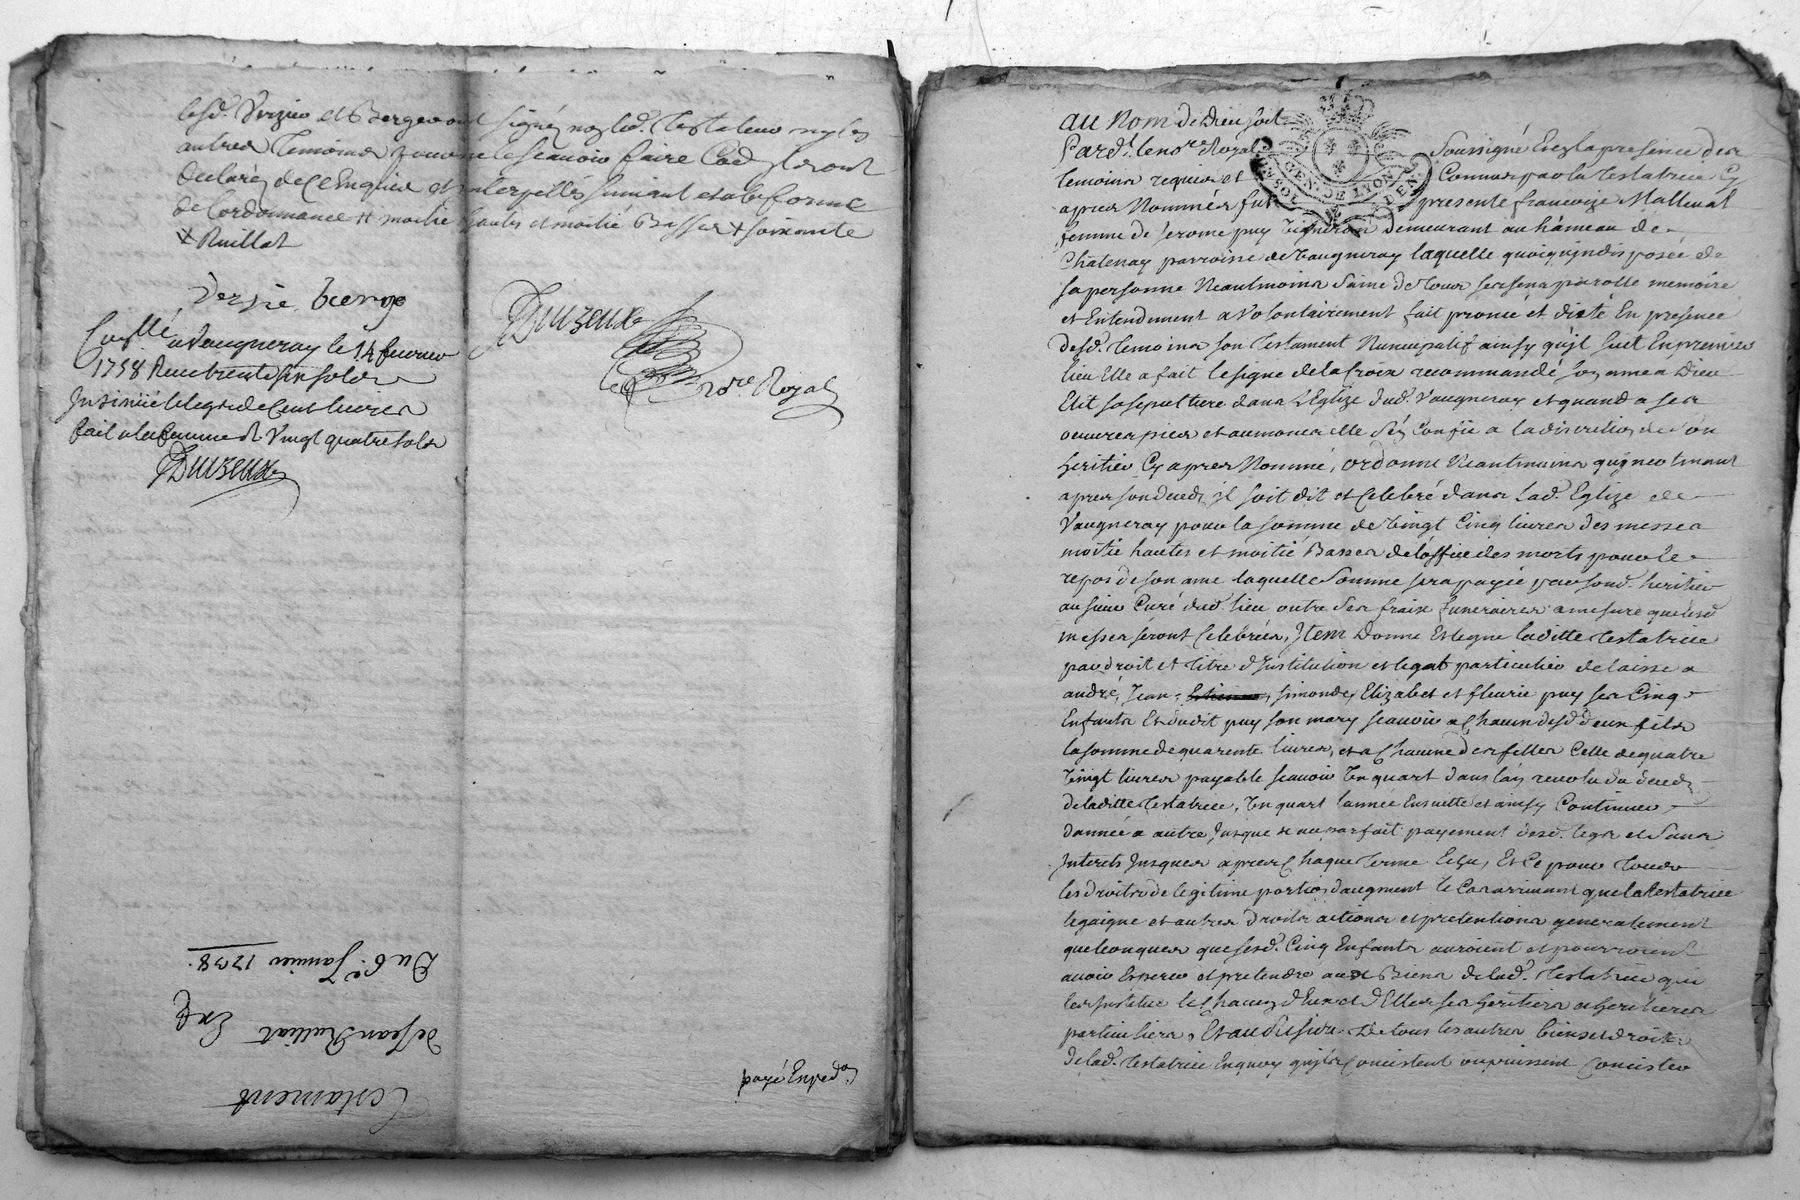 lesd. Verzieu et Bergeron ont signé, non led. Testateur ny les
autres Temoins pour ne le scavoir faire Cad, Ileront
declaré, de ce Enquis et interpellés suivant et a la forme
de l'ordonnance # moitié hautes et moitié Basses + soixante
+ Ruillat
Verzie berge
Duizeux
Con.llé a Vaugneray le 14 fevrier
1738 Receu trente six sols
Insinüé le legs de Cent livres
fait a la femme R. Vingt quatre sols
Duizeux
no.re Royal
Testament
de Jean Ruillat Exp.
Du 6.e Janvier 1738.
payé, Exped.
au Nom de Dieu soit
Pard.t le no.re Royal soussigné En la presence des
GEN. DE LYON
temoins requis et Connus par la Testatrice Cy
apres Nommés fut presente francoize Malleval
femme de Jerome puy Vigneron demeurant au hâmeau de
Châtenay parroisse de Vaugneray laquelle quoiqu'indisposée de
sa personne Neantmoins saine de tous ses sens parolle memoire
et Entendement a volontairement fait prononcé et dicté En presence
desd. temoins son Testament Nuncupatif ainsy qu'il suit En premier
lieu Elle a fait le signe de la Croix recommandé son ame a Dieu
Elit sa sepulture dans L'Eglize dud. Vaugneray et quand a ses
oeuvres pies et aumones elle s'en Confie a la discretion de son
heritier Cy apres Nommé, ordonne Neantmoins qu'incontinant
apres son deceds il soit dit et Celebré dans Lad. Eglize de
Vaugneray pour la somme de Vingt Cinq livres des messes
moitié hautes et moitié Basses de l'office des morts pour le
repos de son ame laquelle somme sera payée par sond. heritier
au sieur Curé dud. lieu outre ses fraix funeraires a mesure que lesd.
messes seront Celebrées, Item Donne Et legue laditte Testatrice
par droit et titre d'Institution et legat particulier delaisse a
andré, Jean, simonde, Elizabet et fleurie puy ses Cinq
Enfants Et dudit puy son mary scavoir a Chacun desd. deux fils
la somme de quarente livres, et a Chacune des filles Celle de quatre
Vingt livres payable scavoir Un quart dans l'an revolu du deceds
de laditte Testatrice, Un quart l'année Ensuitte et ainsy Continuer
d'année a autre Jusque a au parfait payement desd. legs et sans
Interets Jusques apres Chaque terme Echu, Et Ce pour tous
les droits de legitime portion d'augment le Cas arrivant que la testatrice
le gaigne et autres droits actions et pretentions generalement
quelconques que sesd. Cinq Enfants auroient et pourroient
avoir Esperer et pretendre aux Biens de lad. Testatrice qui
les Institue le Chacun d'Eux et d'Elles ses heritiers et heritieres
particuliers, Et au Residu De tous les autres biens et droits
de lad. Testatrice En quoy qu'ils Consistent ou puissent Consister